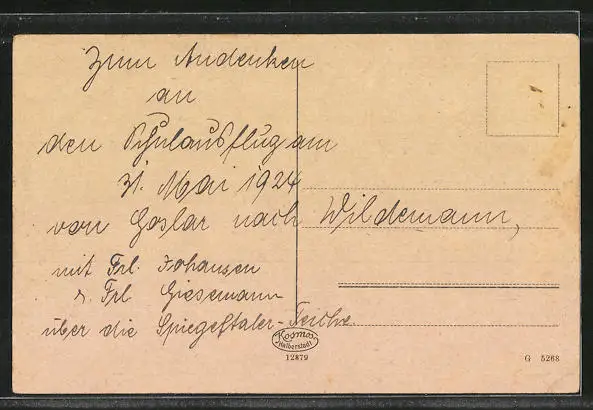 Zum Andenken
an
den Schulausflug am
31. Mai 1924
von Goslar nach Wildemann,
mit Frl. Johansen
u. Frl. Giesemann
über die Spiegeltaler-Teiche.
Kosmos
Halberstadt
12879
G 5268